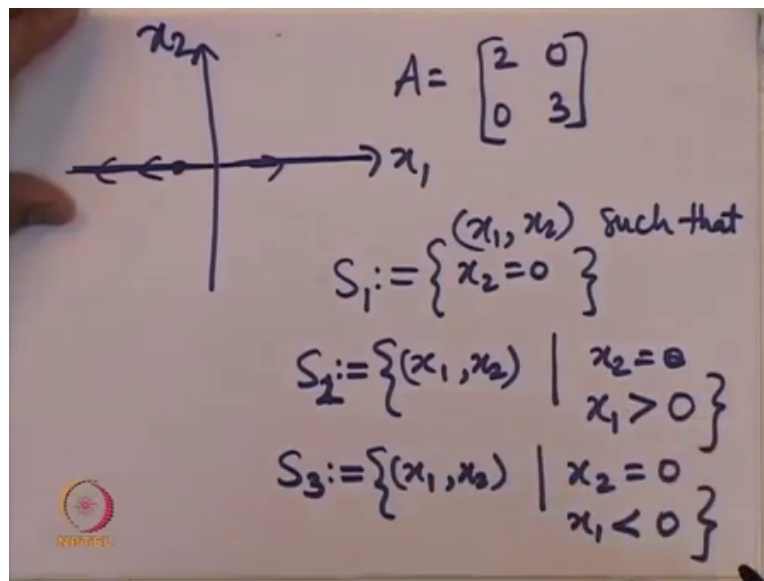 x₂
A = [2 0
0 3]
x₁
(x₁, x₂) such that
S₁ := { x₂ = 0 }
S₂ := {(x₁, x₂) | x₂ = 0
x₁ > 0 }
S₃ := {(x₁, x₂) | x₂ = 0
x₁ < 0 }
NPTEL